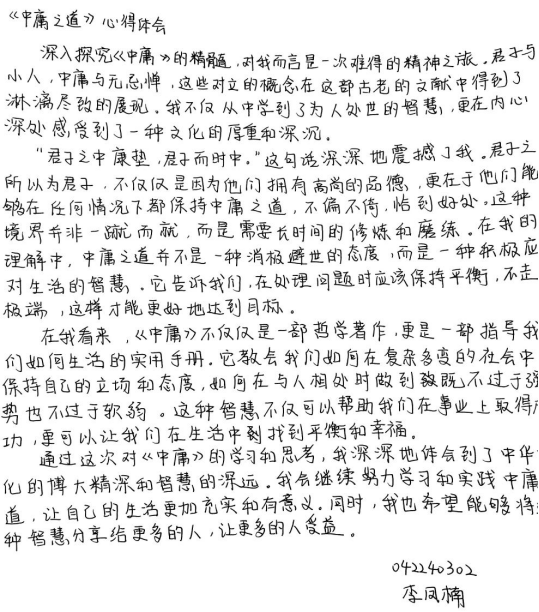 《中庸之道》心得体会
深入探究《中庸》的精髓，对我而言是一次难得的精神之旅。君子与
小人，中庸与无忌惮，这些对立的概念在这部古老的文献中得到了
淋漓尽致的展现。我不仅从中学到了为人处世的智慧，更在内心
深处感受到了一种文化的厚重和深沉。
“君子之中庸垫，君子而时中。”这句话深深地震撼了我。君子之
所以为君子，不仅仅是因为他们拥有高尚的品德，更在于他们能
够在任何情况下都保持中庸之道，不偏不倚，恰到好处。这种
境界并非一蹴而就，而是需要长时间的修炼和磨练。在我的
理解中，中庸之道并不是一种消极避世的态度，而是一种积极应
对生活的智慧。它告诉我们，在处理问题时应该保持平衡，不走
极端，这样才能更好地达到目标。
在我看来，《中庸》不仅仅是一部哲学著作，更是一部指导我
们如何生活的实用手册。它教会我们如何在复杂多变的社会中
保持自己的立场和态度，如何在与人相处时做到既不过于强
势也不过于软弱。这种智慧不仅可以帮助我们在事业上取得成
功，更可以让我们在生活中找到平衡和幸福。
通过这次对《中庸》的学习和思考，我深深地体会到了中华
化的博大精深和智慧的深远。我会继续努力学习和实践中庸
道，让自己的生活更加充实和有意义。同时，我也希望能够将
种智慧分享给更多的人，让更多的人受益。
042240302
李凤楠